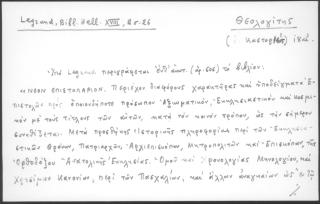 Legrand, Bibl. Hell. XVIII, 2, σ. 26
Θεολογίτης
Καστορ
Ὑπὸ Legrand περιγράφεται ὑπ' ἀριθ. τὸ βιβλίον:
«ΝΕΟΝ ΕΠΙΣΤΟΛΑΡΙΟΝ. Περιέχον διαφόρους χαρακτῆρας καὶ ὑποδείγματα Ἐ-
πιστολῶν πρὸς ὁποιονδήποτε πρόσωπον Ἀξιωματικόν, Ἐκκλησιαστικὸν καὶ Κοσμι-
κὸν μὲ τοὺς τίτλους τῶν αὐτῶν, κατὰ τὸν κοινὸν τρόπον, ὡς τὴν σήμερον
συνηθίζεται. Μετὰ προσθήκης Ἱστορικῆς πληροφορίας περὶ τῶν Ἐκκλησια-
στικῶν Θρόνων, Πατριαρχῶν, Ἀρχιεπισκόπων, Μητροπολιτῶν καὶ Ἐπισκόπων, τῆς
Ὀρθοδόξου Ἀνατολικῆς Ἐκκλησίας. Ὁμοῦ καὶ Χρονολογίας Μηνολογίου, καὶ
Χρησίμων Κανονίων, περὶ τῶν Πασχαλίων, καὶ ἄλλων ἀναγκαίων ὡς